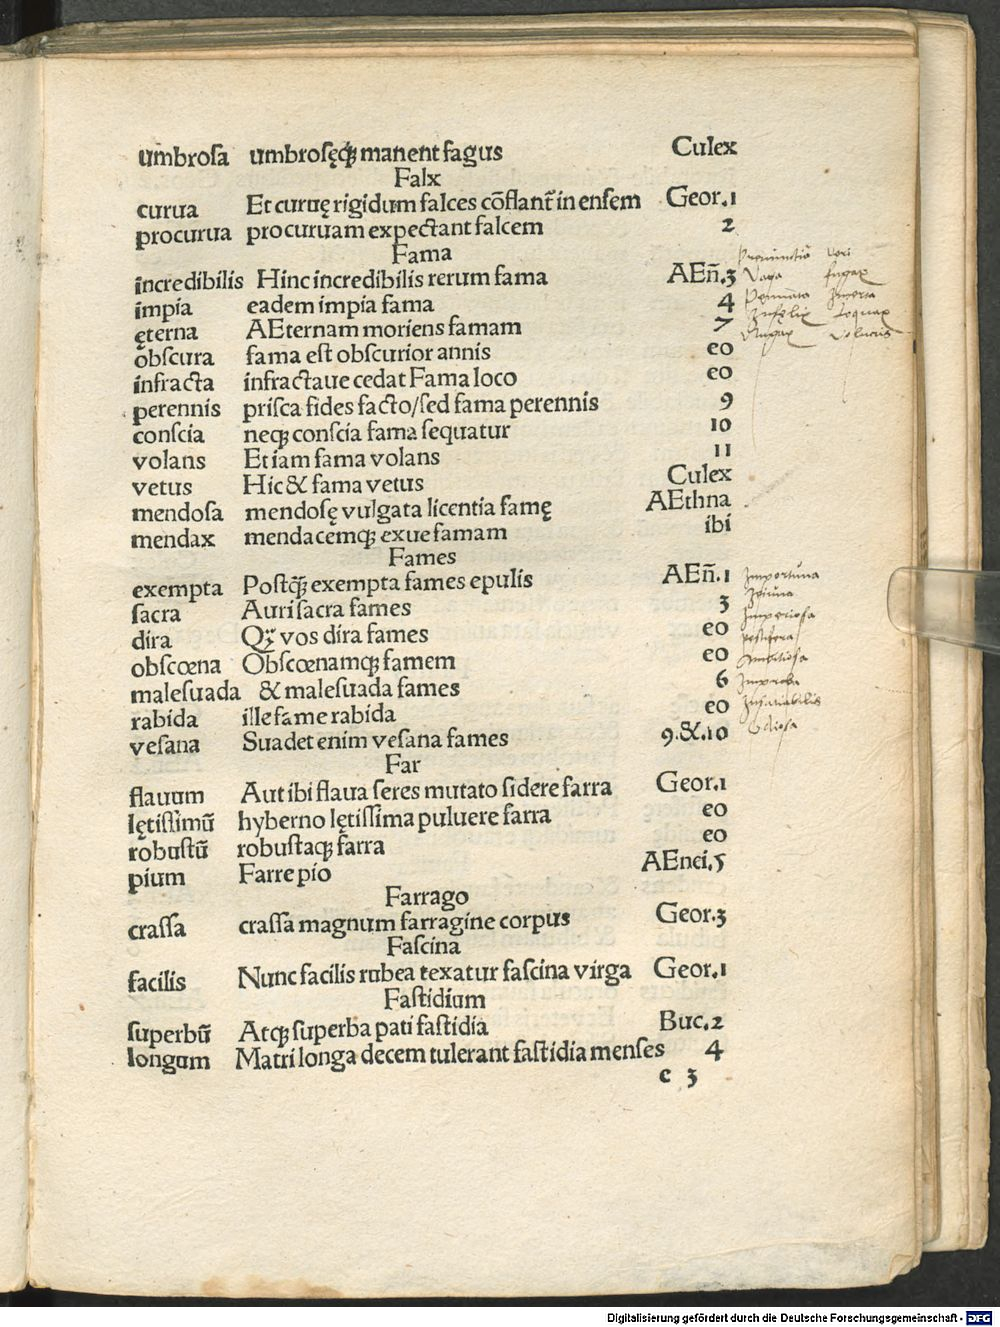 umbrosa umbrosęq̃ manent fagus Culex
Falx
curua Et curuę rigidum falces cõflant̃ in ensem Geor.1
procurua procuruam expectant falcem 2
Fama
incredibilis Hinc incredibilis rerum fama AEñ.3
impia eadem impia fama 4
ęterna AEternam moriens famam 7
obscura fama est obscurior annis eo
infracta infractaue cedat Fama loco eo
perennis prisca fides facto/sed fama perennis 9
conscia neqꝫ conscia fama sequatur 10
volans Et iam fama volans 11
vetus Hic & fama vetus Culex
mendosa mendosę vulgata licentia famę AEthna
mendax mendacemqꝫ exue famam ibi
Fames
exempta Postq̃ꝫ exempta fames epulis AEñ.1
sacra Auri sacra fames 3
dira vos dira fames eo
obscœna Obscœnamqꝫ famem eo
malesuada & malesuada fames 6
rabida ille fame rabida eo
vesana Suadet enim vesana fames 9.&.10
Far
flauum Aut ibi flaua seres mutato sidere farra Geor.1
lętissimũ hyberno lętissima puluere farra eo
robustũ robustaqꝫ farra eo
pium Farre pio AEnei.5
Farrago
crassa crassa magnum farragine corpus Geor.3
Fascina
facilis Nunc facilis rubea texatur fascina virga Geor.1
Fastidium
superbũ Atqꝫ superba pati fastidia Buc.2
longum Matri longa decem tulerant fastidia menses 4
c 3
Vaga fugax
Infelix Loquax
Volucris
Importuna
Ieiuna
Imperiosa
pestifera
Ambitiosa
Improba
Insatiabilis
Digitalisierung gefördert durch die Deutsche Forschungsgemeinschaft - DFG